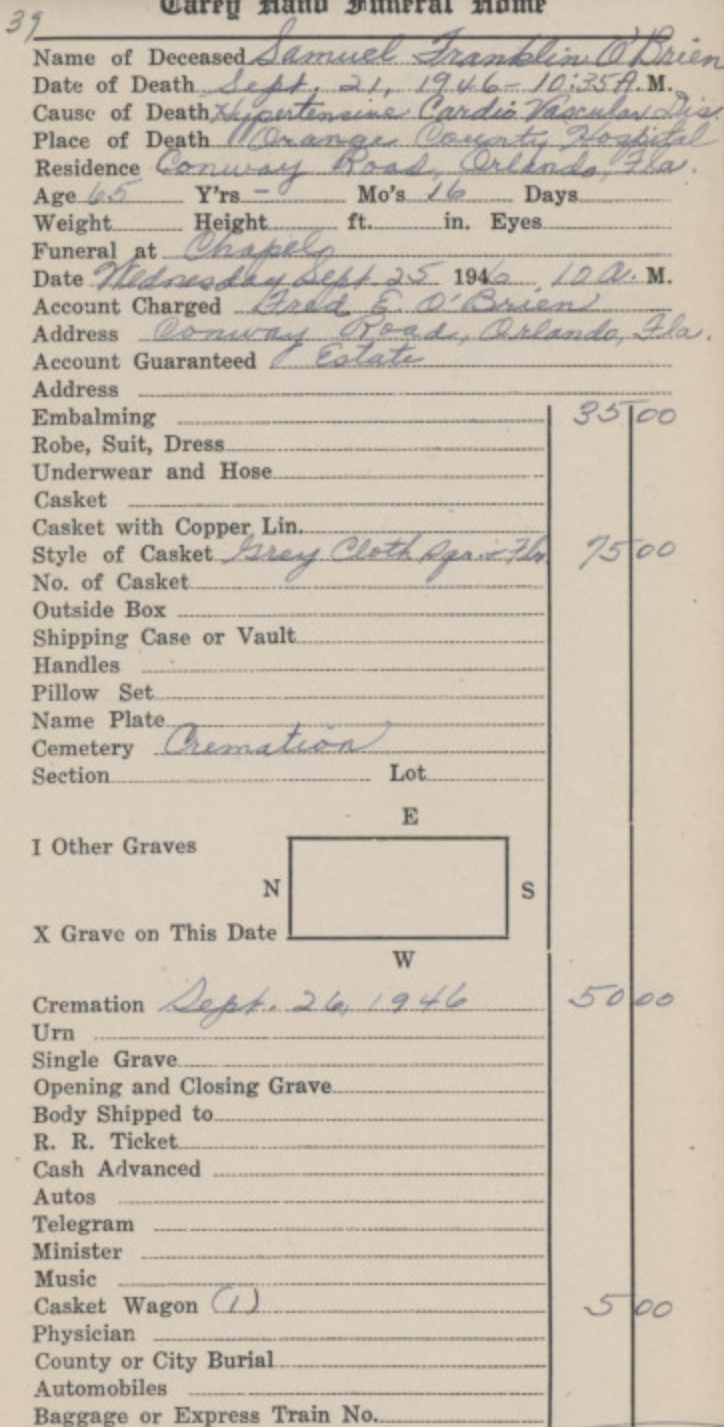 39
Carey Hand Funeral Home
Name of Deceased Samuel Franklin O'Brien
Date of Death Sept. 21, 1946 - 10:35 A. M.
Cause of Death Hypertensive Cardio Vascular Dis.
Place of Death Orange County Hospital
Residence Conway Road, Orlando, Fla.
Age 65 Y'rs - Mo's 16 Days
Weight Height ft. in. Eyes
Funeral at Chapel
Date Wednesday Sept 25 1946 10 A. M.
Account Charged Fred E. O'Brien
Address Conway Road, Orlando, Fla.
Account Guaranteed Estate
Address
Embalming 35 00
Robe, Suit, Dress
Underwear and Hose
Casket
Casket with Copper Lin.
Style of Casket Grey Cloth 75 00
No. of Casket
Outside Box
Shipping Case or Vault
Handles
Pillow Set
Name Plate
Cemetery Cremation
Section Lot
E
I Other Graves
N S
X Grave on This Date
W
Cremation Sept. 26, 1946 50 00
Urn
Single Grave
Opening and Closing Grave
Body Shipped to
R. R. Ticket
Cash Advanced
Autos
Telegram
Minister
Music
Casket Wagon (1) 5 00
Physician
County or City Burial
Automobiles
Baggage or Express Train No.